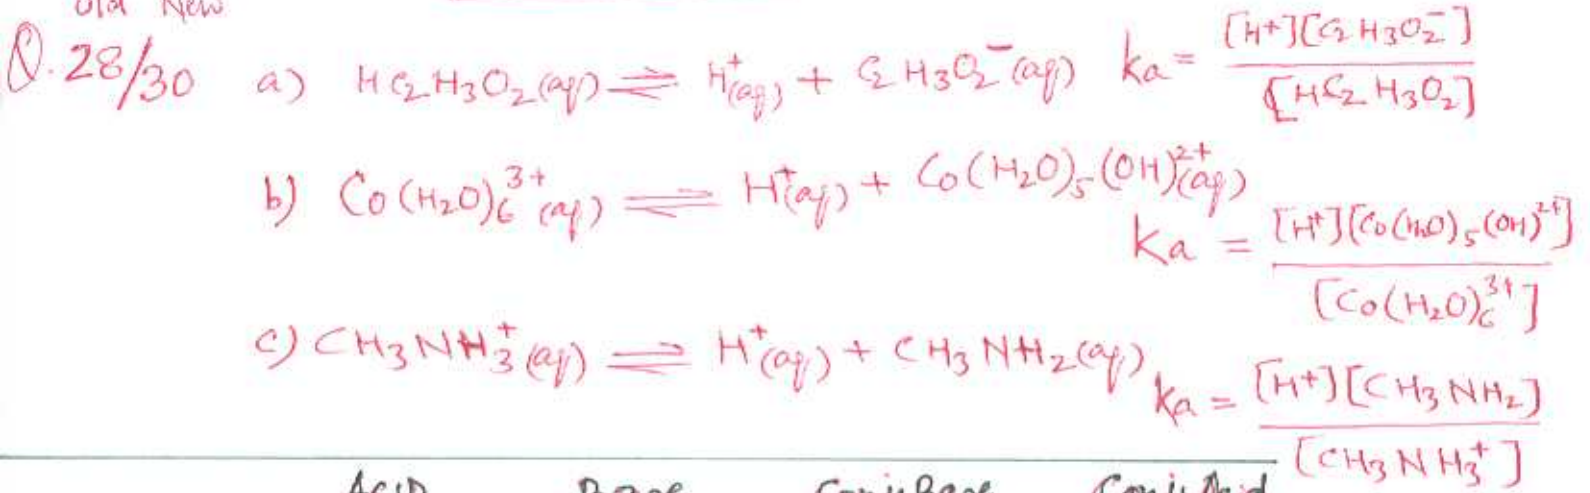 Old New
Q. 28/30 a) HC₂H₃O₂(aq) ⇌ H⁺(aq) + C₂H₃O₂⁻(aq) ka = [H⁺][C₂H₃O₂⁻] / [HC₂H₃O₂]
b) Co(H₂O)₆³⁺(aq) ⇌ H⁺(aq) + Co(H₂O)₅(OH)²⁺(aq)
Ka = [H⁺][Co(H₂O)₅(OH)²⁺] / [Co(H₂O)₆³⁺]
c) CH₃NH₃⁺(aq) ⇌ H⁺(aq) + CH₃NH₂(aq)
Ka = [H⁺][CH₃NH₂] / [CH₃NH₃⁺]
Acid Base Conj. Base Conj. Acid